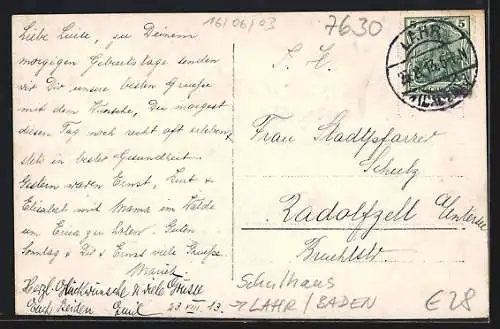 16/06/03
7630
5 5
LAHR
Liebe Luise, zu Deinem
morgigen Geburtstage senden
wir Dir unsere besten Grüsse
mit dem Wunsche, Du mögest
diesen Tag noch recht oft erleben,
in bester Gesundheit.
Gestern waren Ernst, Kurt &
Elisabet mit Mama im Walde
um zu holen. Guten
Sonntag & Dir & Ernst viele Grüsse.
Herzl. Glückwünsche & viele Grüsse
Emil 23 VIII. 13.
S. H.
Frau Stadtpfarrer
Schulz
Radolfzell
Schulhaus
→ LAHR / BADEN
€28